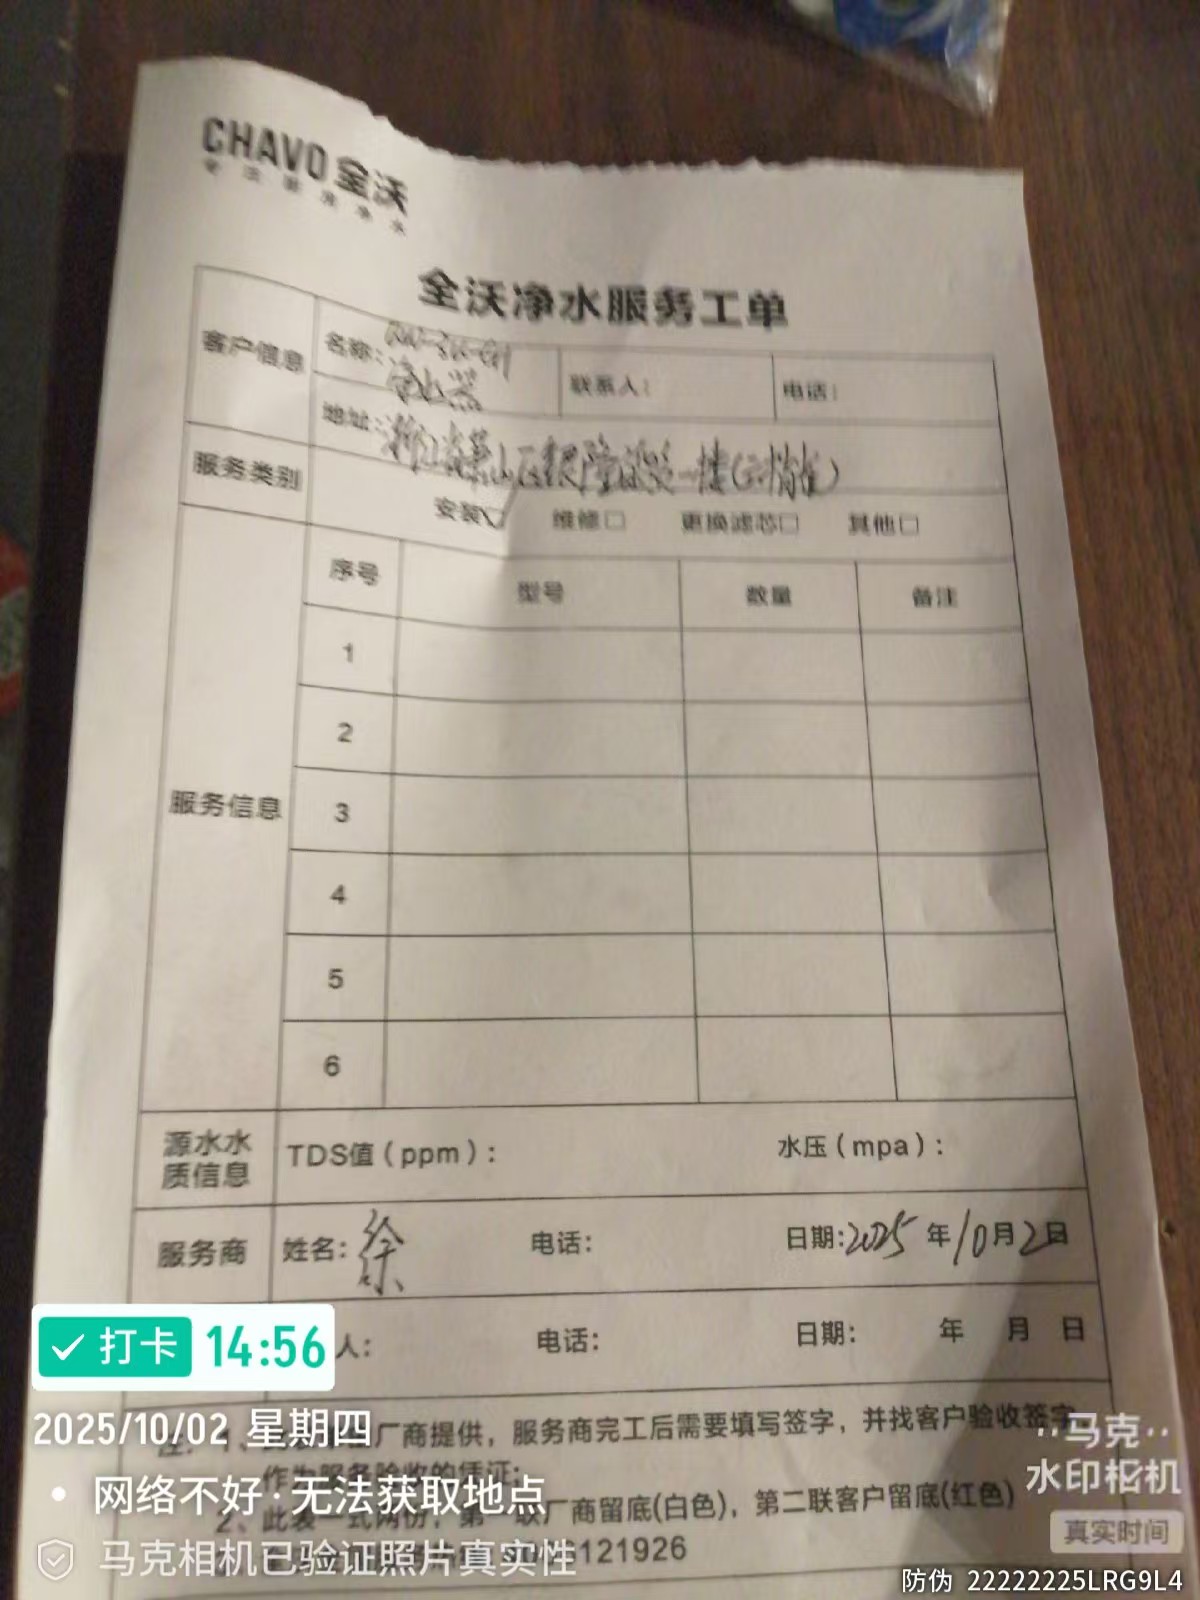 CHAVO 全沃
全沃净水服务工单
客户信息
名称:
净水器
联系人:
电话:
地址:
一楼
服务类别
安装☑ 维修□ 更换滤芯□ 其他□
服务信息
序号 型号 数量 备注
1
2
3
4
5
6
源水水
质信息
TDS值(ppm): 水压(mpa):
服务商
姓名:徐 电话: 日期:2025年10月2日
人: 电话: 日期: 年 月 日
注: 1、 厂商提供，服务商完工后需要填写签字，并找客户验收签字，
作为服务验收的凭证;
2、此表一式两份，第一联厂商留底(白色)，第二联客户留底(红色)
121926
打卡 14:56
2025/10/02 星期四
• 网络不好·无法获取地点
马克相机已验证照片真实性
马克
水印相机
真实时间
防伪 22222225LRG9L4